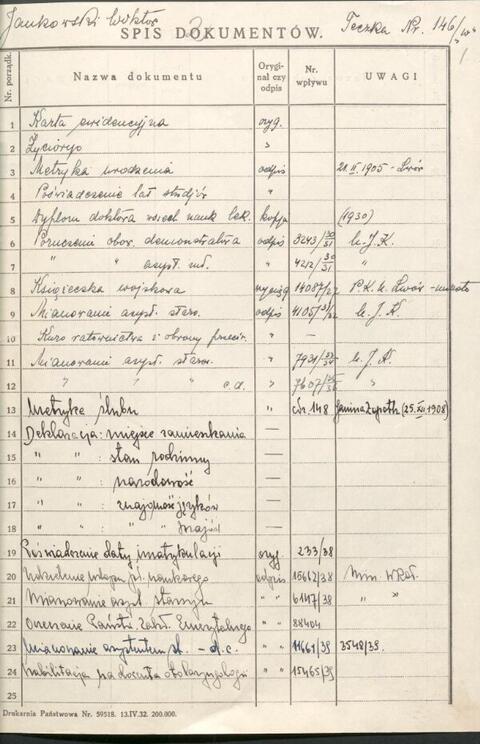 Jankowski Wiktor Teczka Nr. 146/"w"
SPIS DOKUMENTÓW. 1
Nr. porządk. Nazwa dokumentu Orygi- nał czy odpis Nr. wpływu UWAGI
1 Karta ewidencyjna oryg.
2 Życiorys "
3 Metryka urodzenia odpis 21.II.1905 - Lwów
4 Poświadczenie lat studjów "
5 Dyplom doktora wszech nauk lek. kopja (1930)
6 Poruczenie obow. demonstratora odpis 3243/30/31 U.J.K.
7 " " asyst. mł. " 4212/30/31 "
8 Książeczka wojskowa wyciąg P.K.U. Lwów - miasto
9 Mianowanie asyst. starsz. odpis U.J.K.
10 Kurs ratownictwa i obrony " —
11 Mianowanie asyst. starsz. " U.J.K.
12 " " " c.d. " "
13 Metryka ślubu " L.dz. 148 Janina (25.XII.1908)
14 Deklaracja: miejsce zamieszkania —
15 " " : stan rodzinny —
16 " " : narodowość —
17 " " : znajomość języków —
18 " " : " —
19 Poświadczenie daty imatrykulacji oryg. 233/38
20 odpis 15662/38 Min. WRiOP.
21 Mianowanie asyst. starszym " " 6147/38 " "
22 Orzeczenie Państw. Zakł. Emerytalnego " " 88404
23 Mianowanie asystentem st. - d.c. " " 11661/39 3548/39.
24 Habilitacja na docenta otolaryngologii " " 15465/39
25
Drukarnia Państwowa Nr. 59518. 13.IV.32. 200.000.